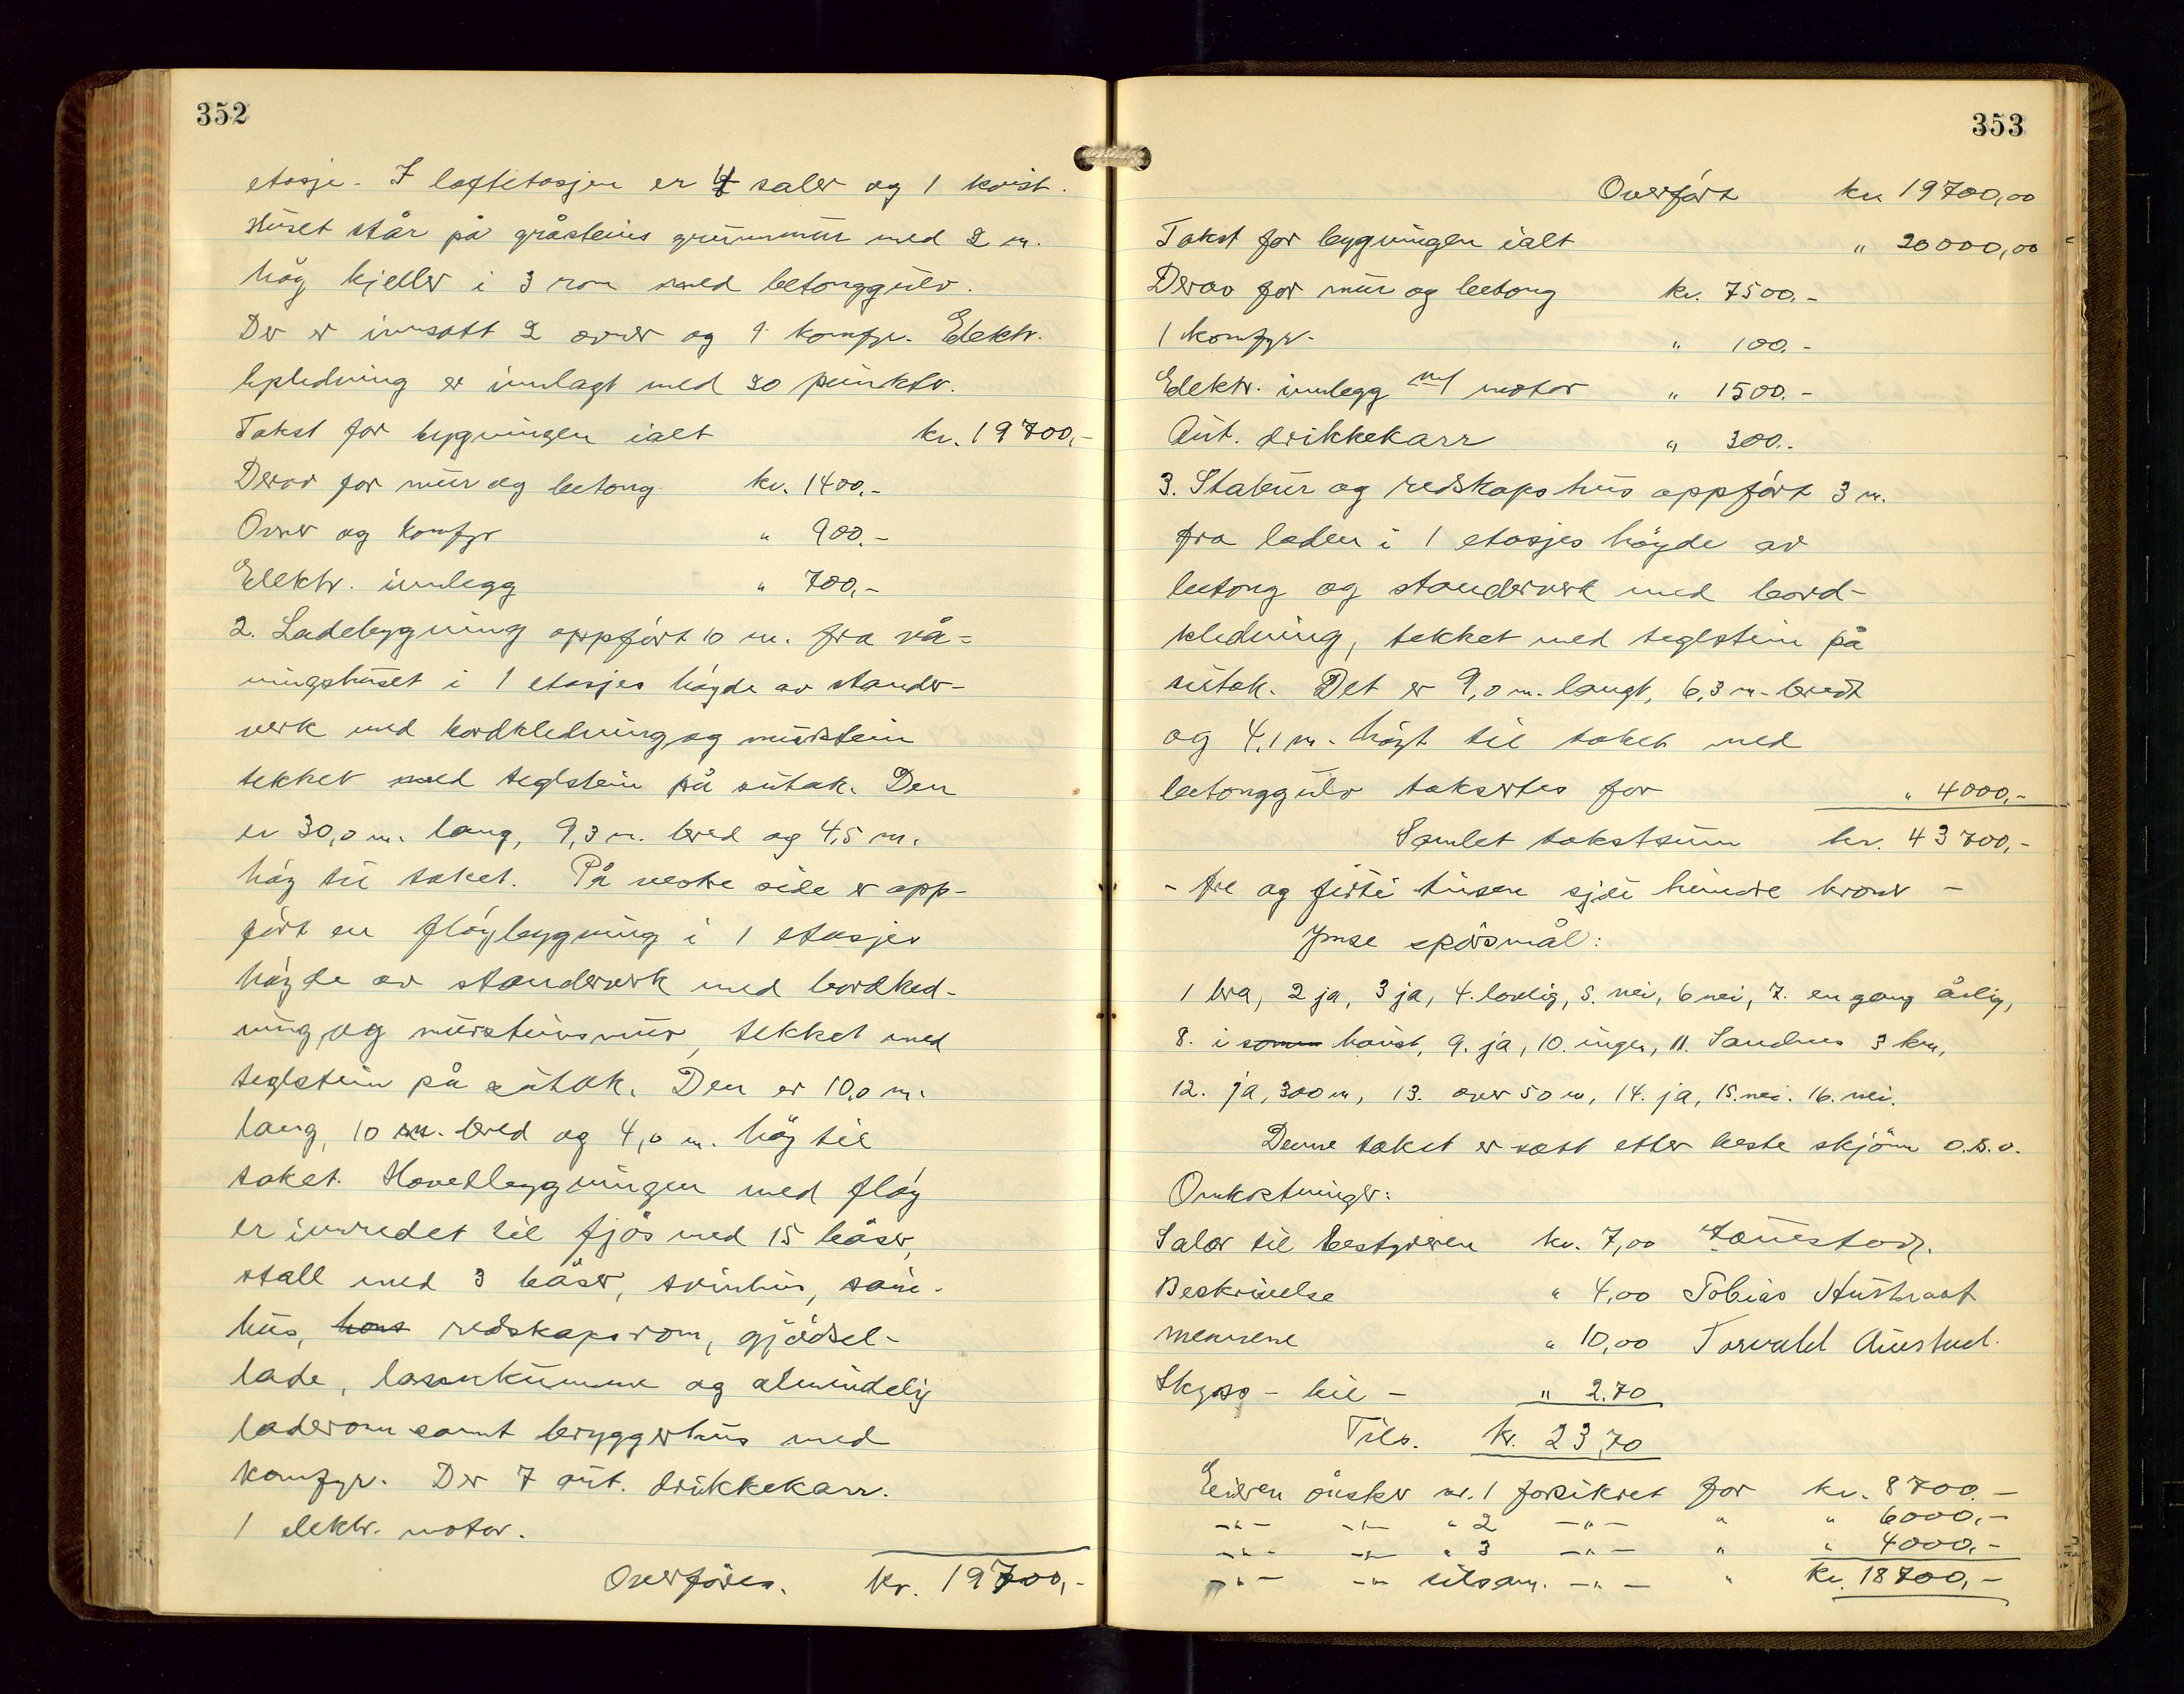 352
etasje. I loftetasjen er 4 saler og 1 kvist.
Huset står på gråsteins grunnmur med 2 m.
høg kjeller i 3 rom med betonggulv.
Der er innsatt 2 ovner og 1 komfyr. Elektr.
lysledning er innlagt med 20 punkter.
Takst for bygningen ialt kr. 19700,-
Derav for mur og betong kr. 1400.-
Ovner og komfyr " 900.-
Elektr. innlegg " 700,-
2. Ladebygning oppført 10 m. fra vå=
ningshuset i 1 etasjes høgde av stander-
verk med bordkledning og murstein
tekket med teglstein på sutak. Den
er 30,0 m. lang, 9,3 m. bred og 4,5 m.
høg til taket. På vestre side er opp-
ført en fløybygning i 1 etasjes
høgde av standerverk med bordked-
ning og mursteinsmur, tekket med
teglstein på sutak. Den er 10,0 m.
lang, 10 m. bred og 4,0 m. høg til
taket. Hovedbygningen med fløy
er innredet til fjøs med 15 båser,
stall med 3 båser, svinhus, saue-
hus, hons redskapsrom, gjødsel-
lade, lannkumme og almindelig
laderom samt bryggerhus med
komfyr. Der 7 aut. drikkekarr.
1 elektr. motor.
Overføres. kr. 19700,-
353
Overført kr 19700,00
Takst for bygningen ialt " 20000,00
Derav for mur og betong kr. 7500.-
1 komfyr. " 100.-
Elektr. innlegg m/ motor " 1500.-
Aut. drikkekarr " 300.-
3. Stabur og redskapshus oppført 3 m.
fra laden i 1 etasjes høyde av
betong og standerverk med bord-
kledning, tekket med teglstein på
sutak. Det er 9,0 m. langt, 6,3 m. bredt
og 4,1 m. høgt til taket med
betonggulv takseres for " 4000,-
Samlet takstsum kr. 43700,-
- tre og førti tusen sju hundre kroner -
Ymse spörsmål:
1 bra, 2 ja, 3 ja, 4. lovlig, 5. nei, 6 nei, 7. en gang årlig,
8. i somm haust, 9. ja, 10. ingen, 11. Sandnes 3 km,
12. ja, 300 m, 13. over 50 m, 14. ja, 15. nei. 16. nei.
Denne takst er satt etter beste skjönn o.s.v.
Omkostninger:
Salar til bestyreren kr. 7,00
Beskrivelse " 4,00 Tobias Hustraat
mennene " 10,00 Torvald Austad.
Skyss - bil - " 2.70
Tils. kr. 23,70
Eieren ønsker nr. 1 forsikret for kr. 8700.-
-"- -"- " 2 -"- " " 6000,-
-"- -"- " 3 -"- " " 4000,-
-"- -"- tilsam. -"- " kr. 18700,-